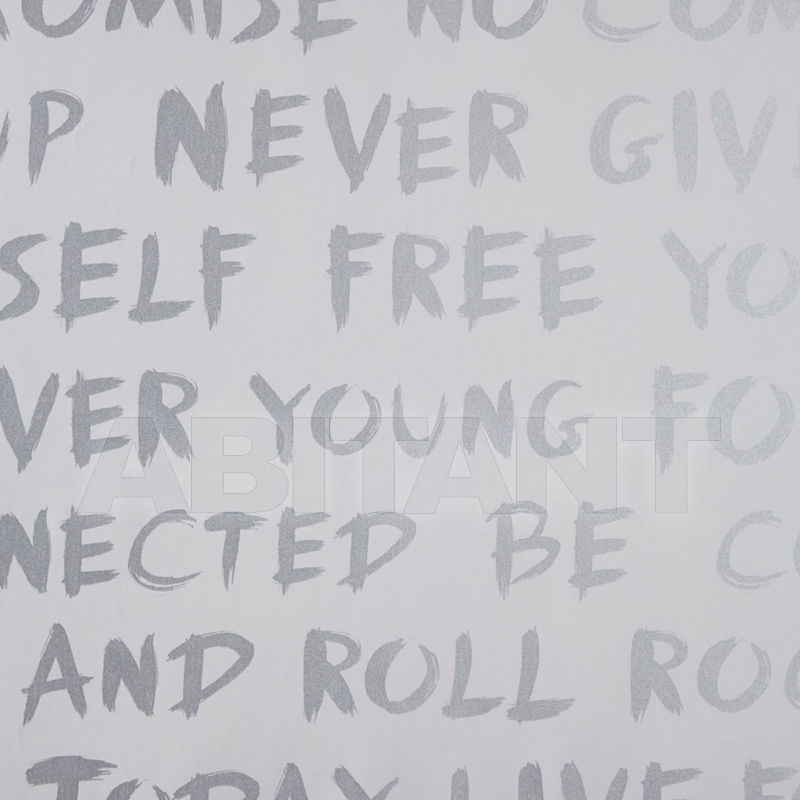 OMISE NO COM
UP NEVER GIVE
SELF FREE YO
VER YOUNG FO
ABITANT
NECTED BE CO
AND ROLL ROC
TODAY LIVE F